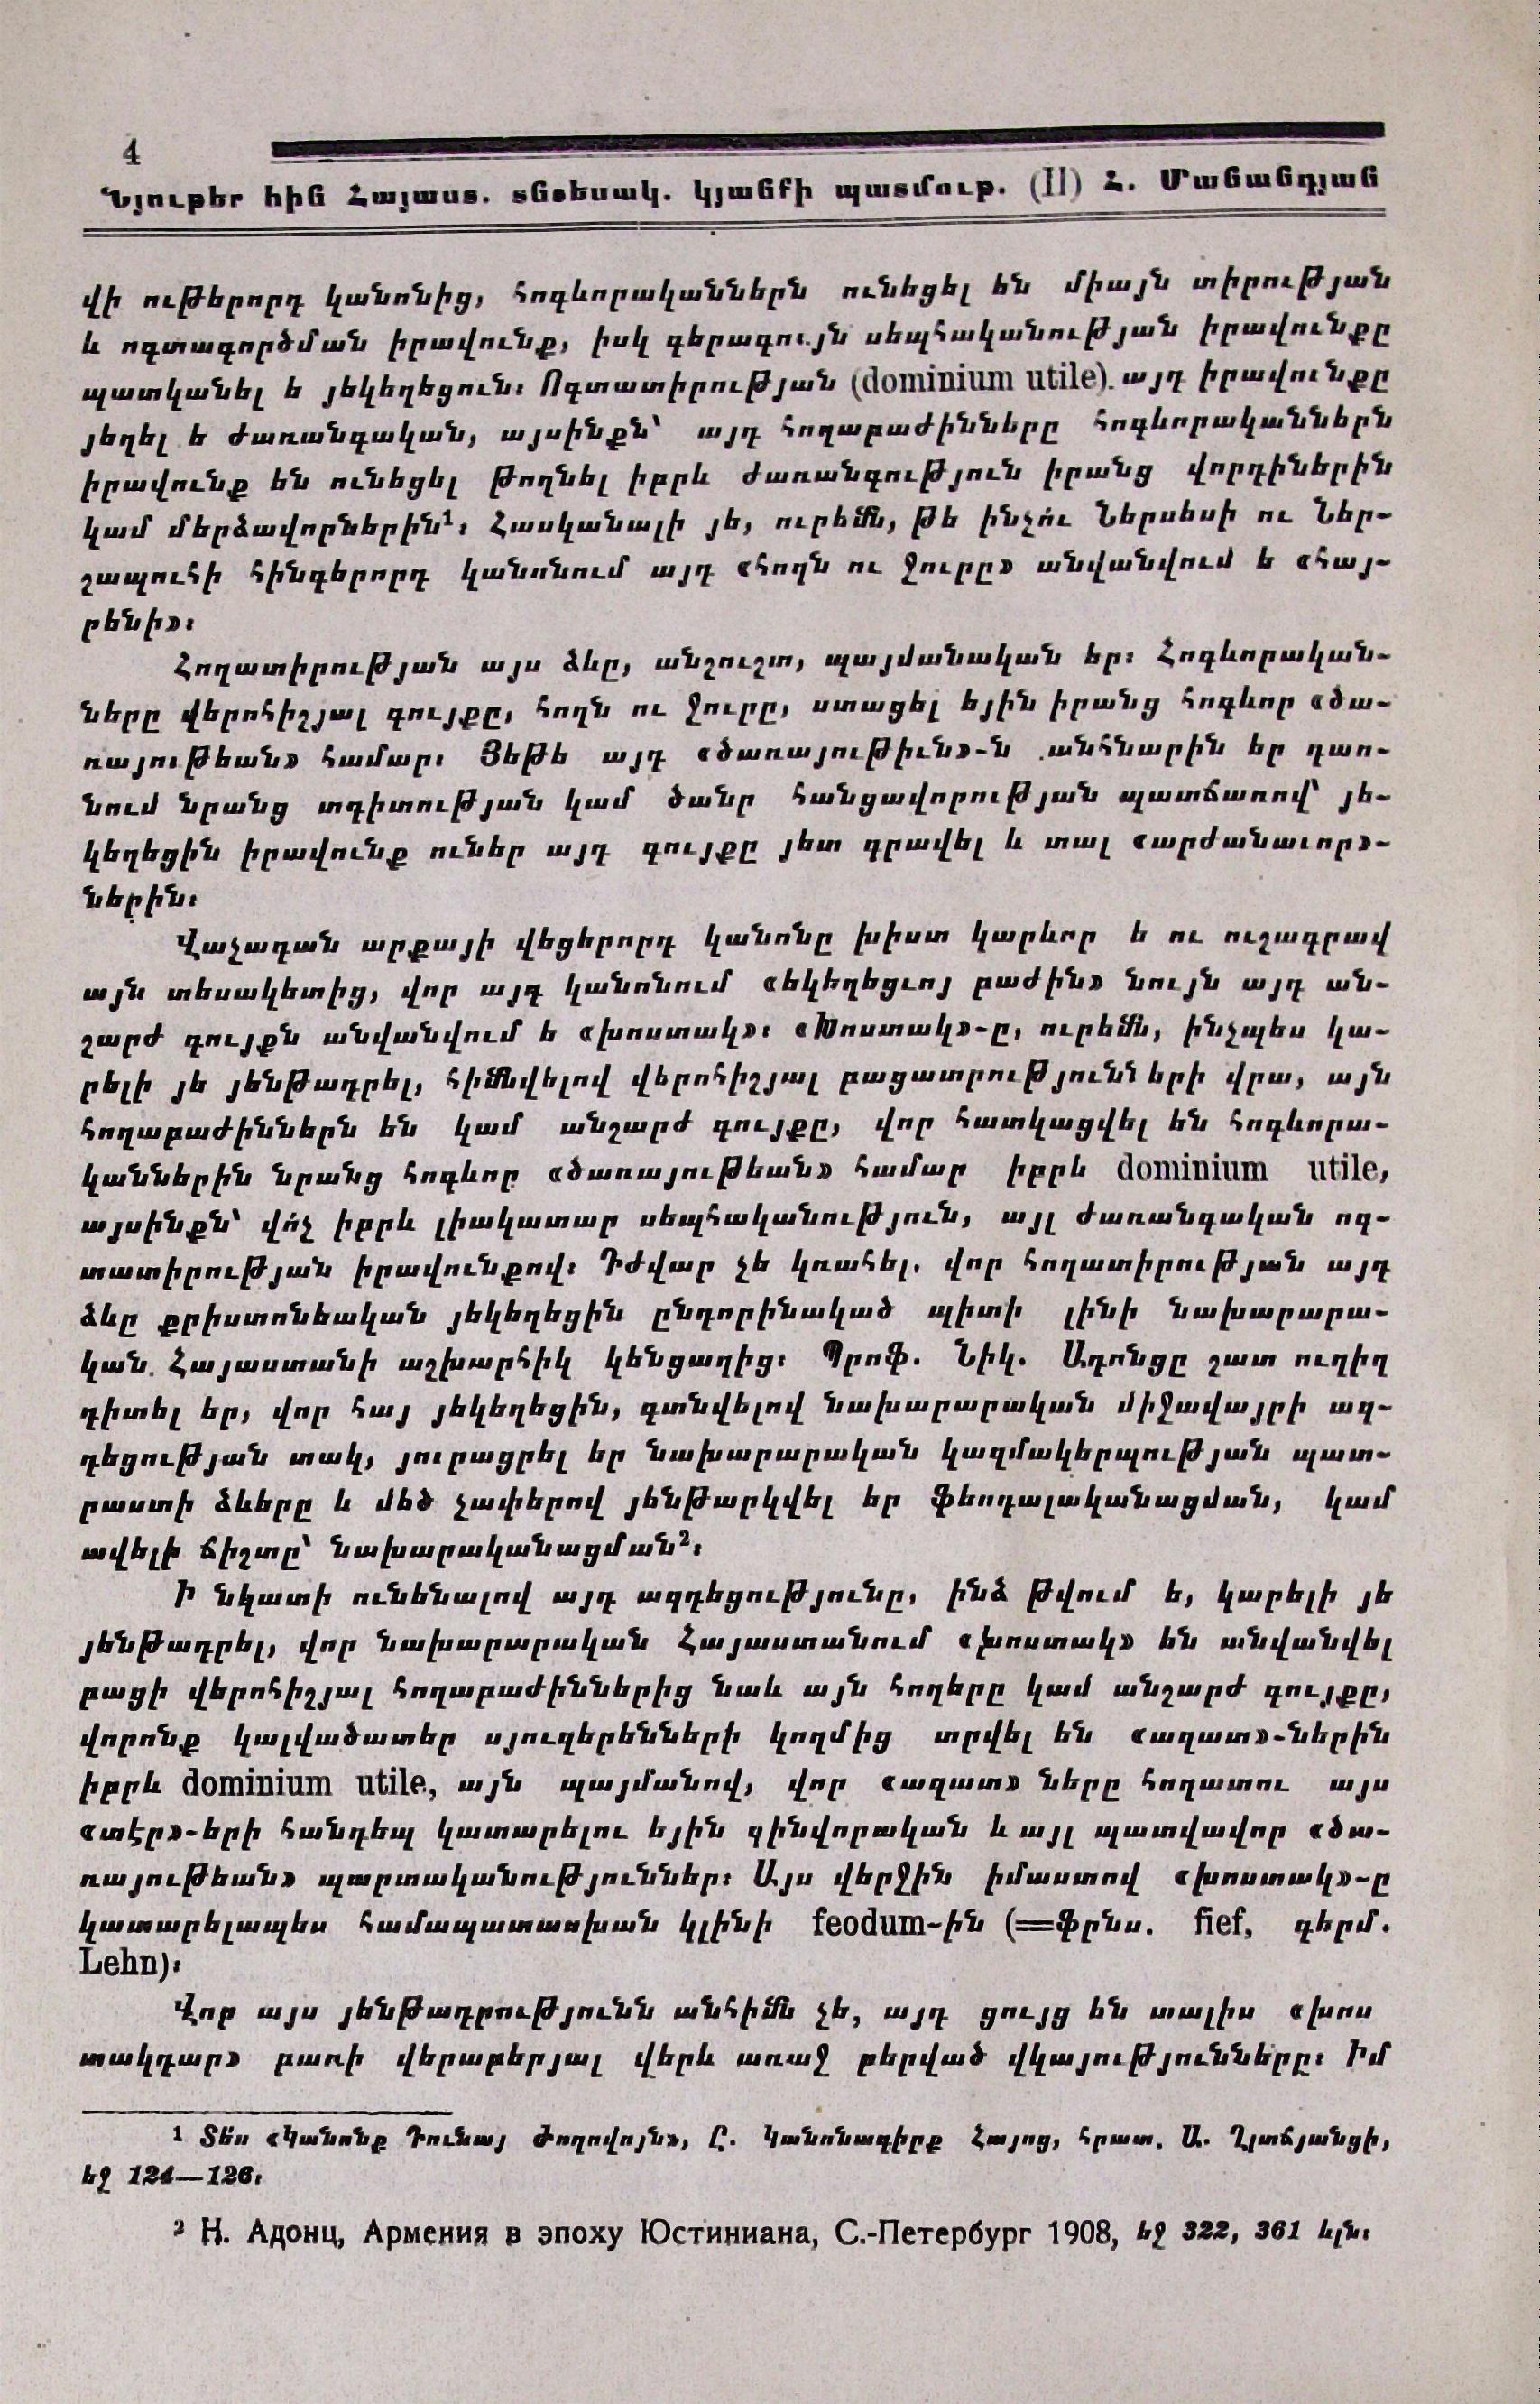 4
Նյութեր հին Հայաստ. տնտեսակ. կյանքի պատմութ. (II) Հ. Մանանդյան
վի ութերորդ կանոնից, հոգևորականներն ունեցել են միայն տիրության
և ոգտագործման իրավունք, իսկ գերագույն սեպհականության իրավունքը
պատկանել ե յեկեղեցուն։ Ոգտատիրության (dominium utile). այդ իրավունքը
յեղել ե ժառանգական, այսինքն՝ այդ հողաբաժինները հոգևորականներն
իրավունք են ունեցել թողնել իբրև ժառանգություն իրանց վորդիներին
կամ մերձավորներին¹։ Հասկանալի յե, ուրեմն, թե ինչո՛ւ Ներսեսի ու Ներ-
շապուհի հինգերորդ կանոնում այդ «հողն ու ջուրը» անվանվում ե «հայ-
րենի»։
Հողատիրության այս ձևը, անշուշտ, պայմանական եր։ Հոգևորական-
ները վերոհիշյալ գույքը, հողն ու ջուրը, ստացել եյին իրանց հոգևոր «ծա-
ռայութեան» համար։ Յեթե այդ «ծառայութիւն»-ն անհնարին եր դառ-
նում նրանց տգիտության կամ ծանր հանցավորության պատճառով՝ յե-
կեղեցին իրավունք ուներ այդ գույքը յետ գրավել և տալ «արժանաւոր»-
ներին։
Վաչագան արքայի վեցերորդ կանոնը խիստ կարևոր ե ու ուշագրավ
այն տեսակետից, վոր այդ կանոնում «եկեղեցւոյ բաժին» նույն այդ ան-
շարժ գույքն անվանվում ե «խոստակ»։ «Խոստակ»-ը, ուրեմն, ինչպես կա-
րելի յե յենթադրել, հիմնվելով վերոհիշյալ բացատրությունների վրա, այն
հողաբաժիններն են կամ անշարժ գույքը, վոր հատկացվել են հոգևորա-
կաններին նրանց հոգևոր «ծառայութեան» համար իբրև dominium utile,
այսինքն՝ վո՛չ իբրև լիակատար սեպհականություն, այլ ժառանգական ոգ-
տատիրության իրավունքով։ Դժվար չե կռահել. վոր հողատիրության այդ
ձևը քրիստոնեական յեկեղեցին ընդորինակած պիտի լինի նախարարա-
կան Հայաստանի աշխարհիկ կենցաղից։ Պրոֆ. Նիկ. Ադոնցը շատ ուղիղ
դիտել եր, վոր հայ յեկեղեցին, գտնվելով նախարարական միջավայրի ազ-
դեցության տակ, յուրացրել եր նախարարական կազմակերպության պատ-
րաստի ձևերը և մեծ չափերով յենթարկվել եր ֆեոդալականացման, կամ
ավելի ճիշտը՝ նախարականացման²։
Ի նկատի ունենալով այդ ազդեցությունը, ինձ թվում ե, կարելի յե
յենթադրել, վոր նախարարական Հայաստանում «խոստակ» են անվանվել
բացի վերոհիշյալ հողաբաժիններից նաև այն հողերը կամ անշարժ գույքը,
վորոնք կալվածատեր սյուզերենների կողմից տրվել են «ազատ»-ներին
իբրև dominium utile, այն պայմանով, վոր «ազատ» ները հողատու այս
«տէր»-երի հանդեպ կատարելու եյին զինվորական և այլ պատվավոր «ծա-
ռայութեան» պարտականություններ։ Այս վերջին իմաստով «խոստակ»-ը
կատարելապես համապատասխան կլինի feodum-ին (=ֆրնս. fief, գերմ.
Lehn)։
Վոր այս յենթադրությունն անհիմն չե, այդ ցույց են տալիս «խոս
տակդար» բառի վերաբերյալ վերև առաջ բերված վկայությունները։ Իմ
¹ Տես «Կանոնք Դունայ Ժողովոյն», Ը. Կանոնագիրք Հայոց, հրատ. Ա. Ղլտճյանցի,
եջ 124—126։
² Н. Адонц, Армения в эпоху Юстиниана, С.-Петербург 1908, եջ 322, 361 ևլն։